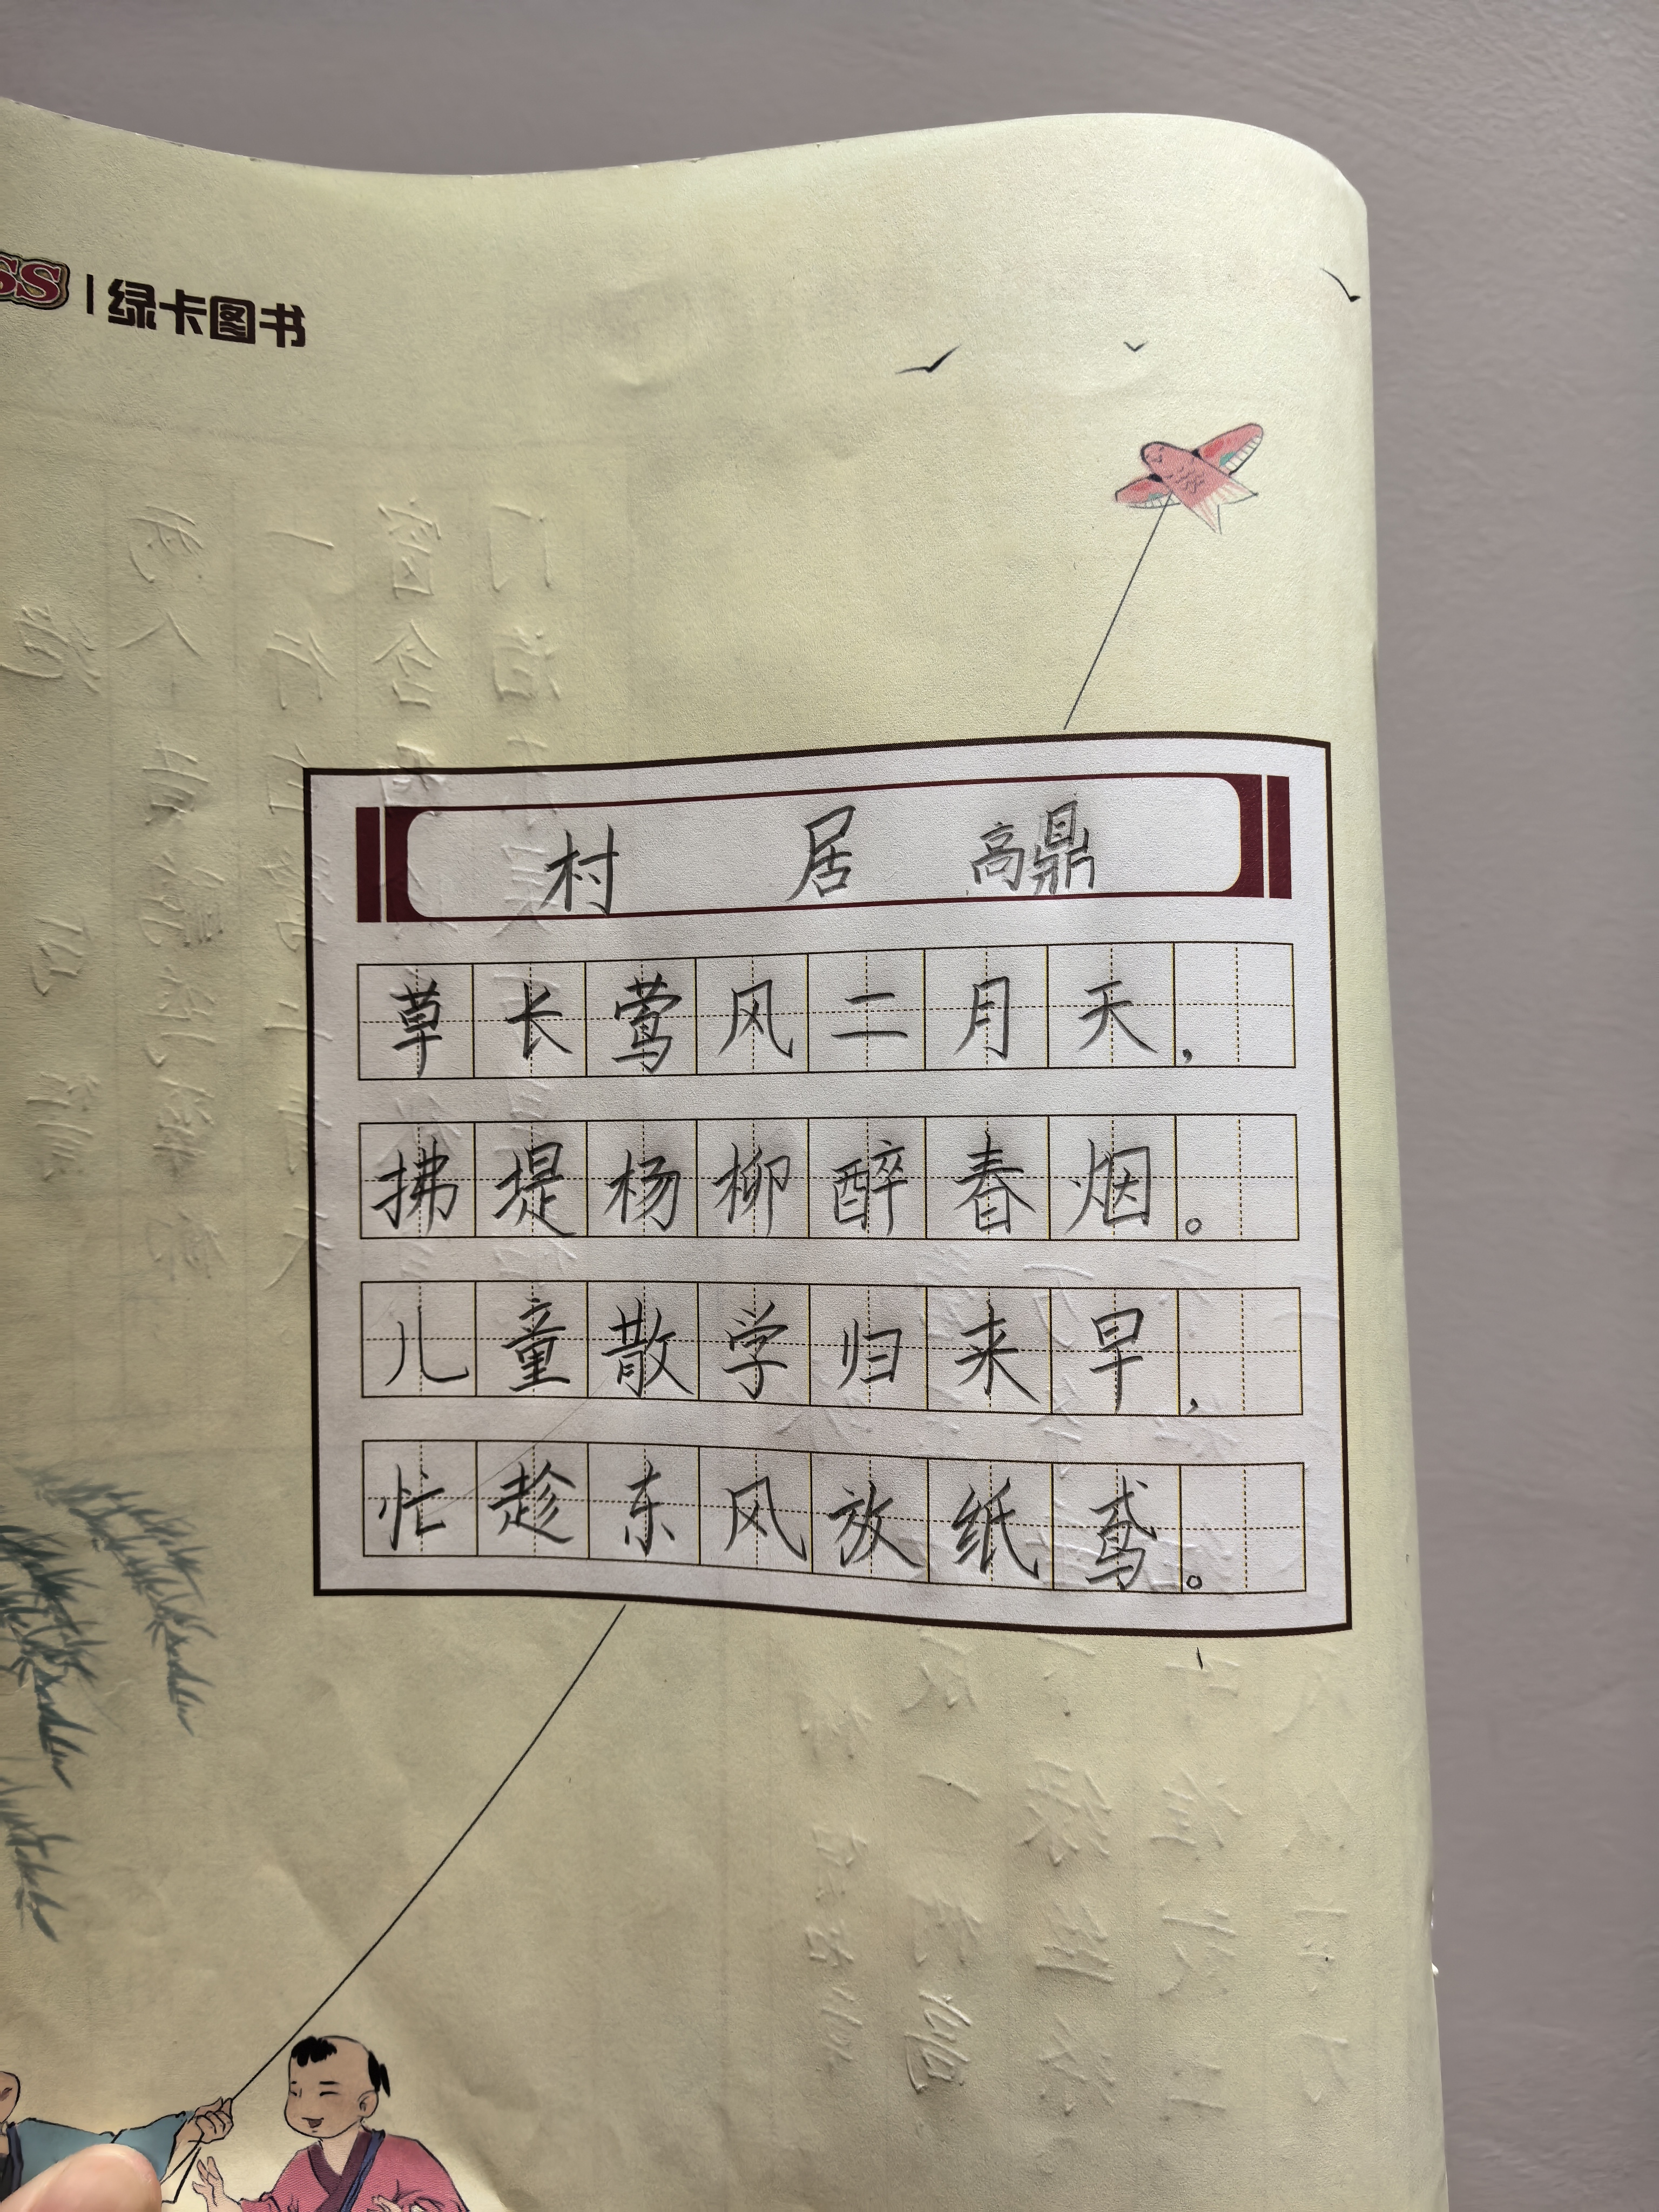 SS | 绿卡图书
村居 高鼎
草长莺风二月天，
拂堤杨柳醉春烟。
儿童散学归来早，
忙趁东风放纸鸢。